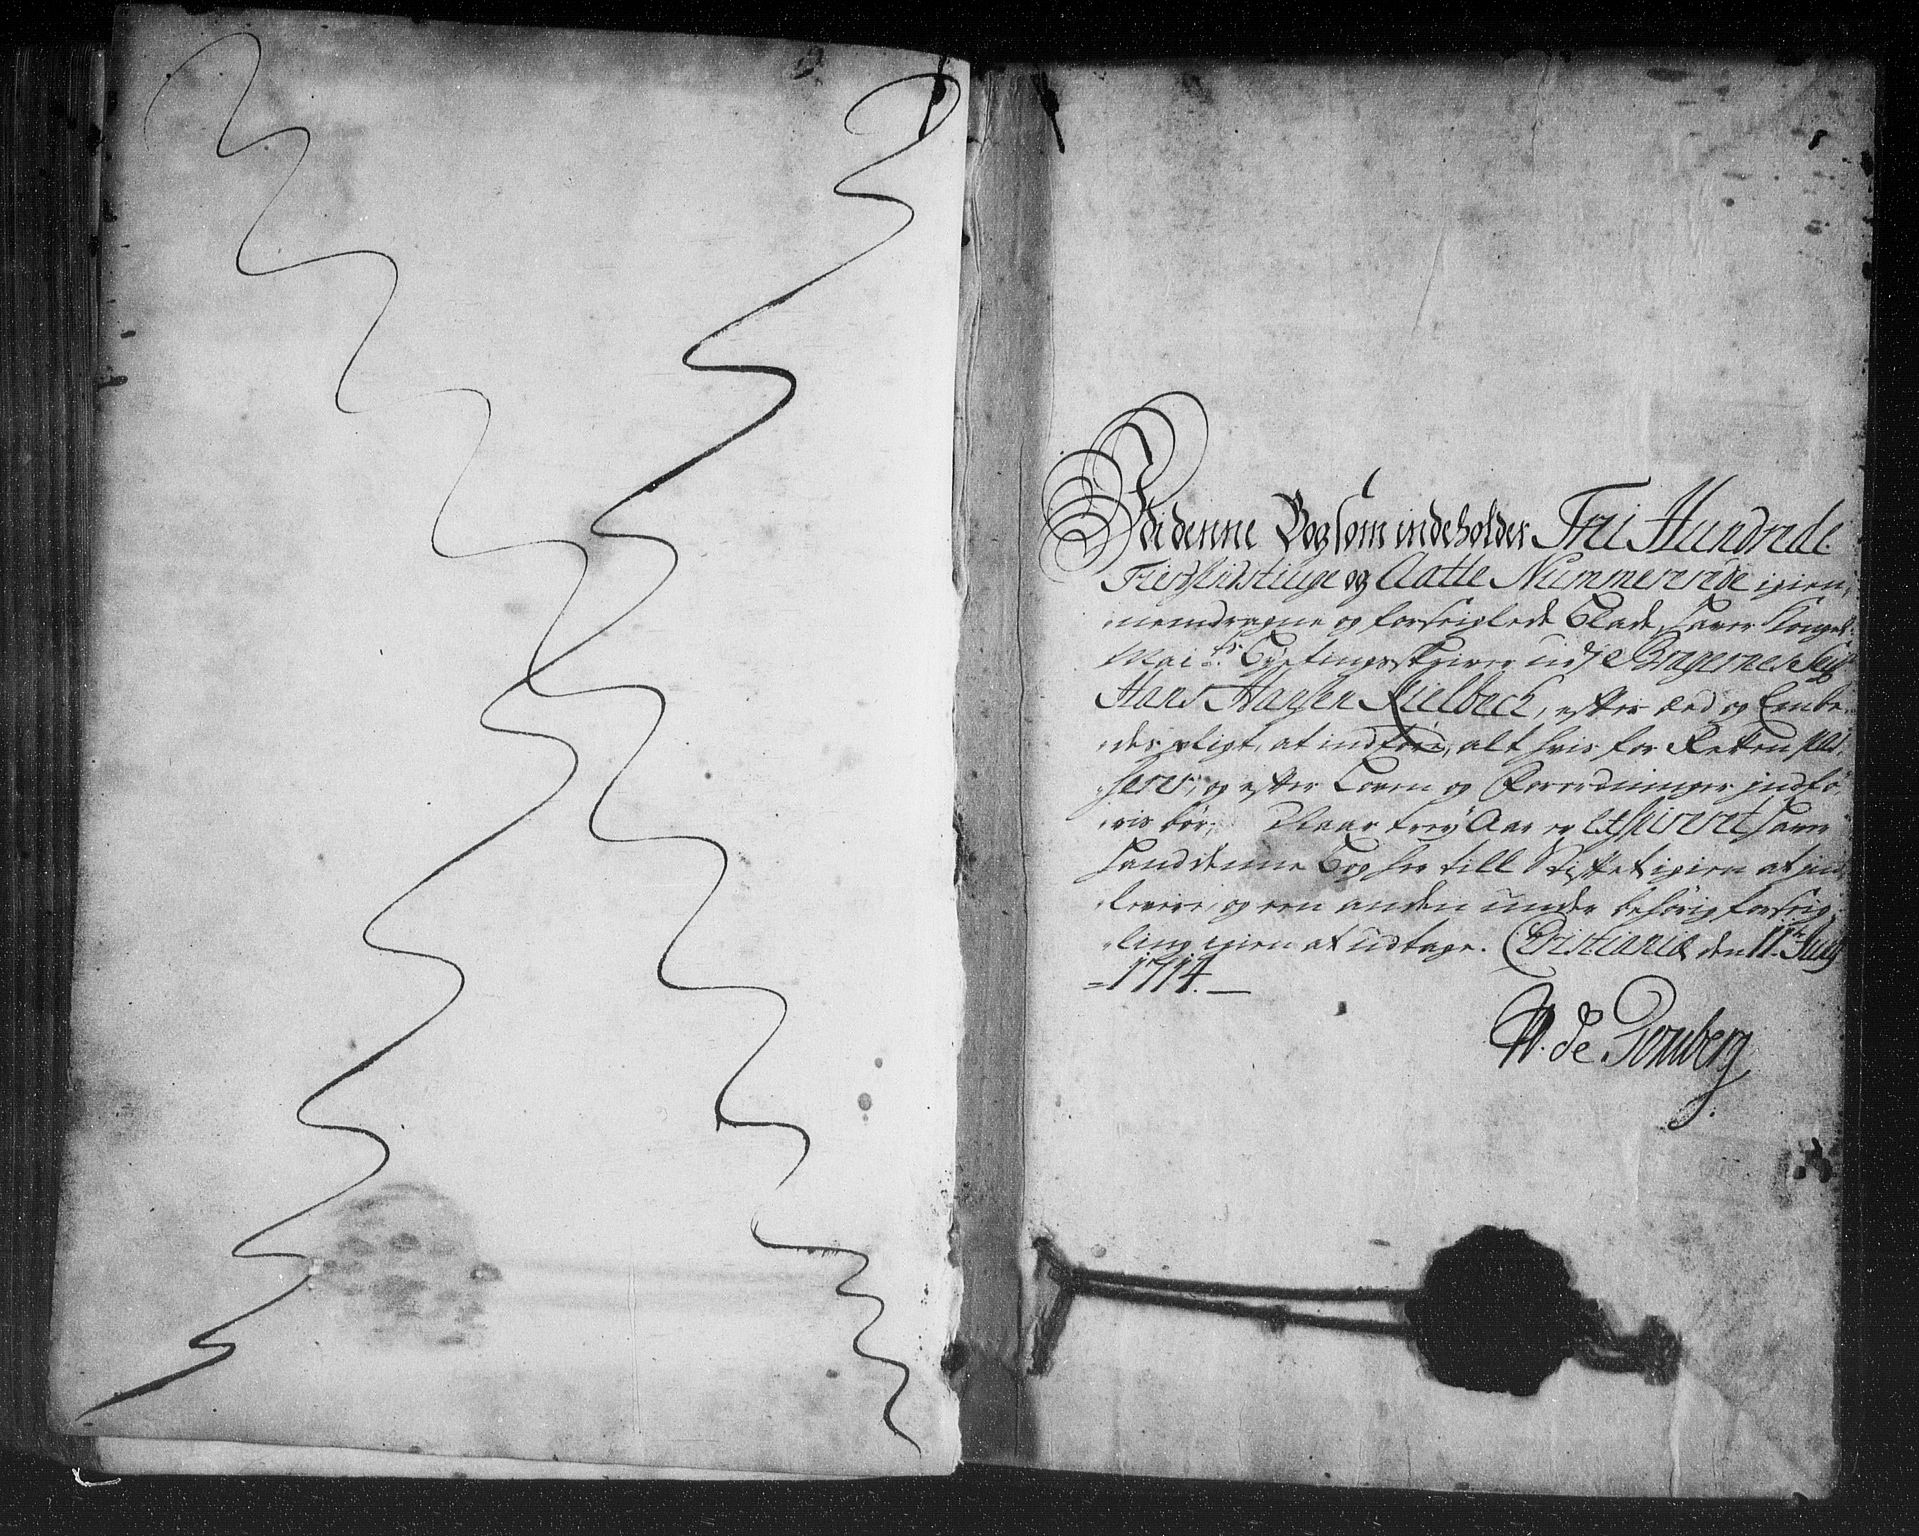 Udi denne Bog som indeholder Trei Hundrede
Fierdsindstiuge og Aatte Nummererede igien¬
nemdragne og forseiglede Blade, haver Kongel:
Mai:ts Byetingsskriver udj Bragernes Seigr
Hans Hansen Kielbech, efter Æed og Embe¬
des pligt, at indføre, alt hvis for Retten pas¬
serer, og efter Loven og Forordninger indfø¬
ris bør, Naar trey Aar er Expireret haver
hand denne Bog her till Stiftet igien at ind
levere, og een anden under behørig forseig¬
ling igien at udtage. Christiania den 11te July
1714.
W. de Tonsberg